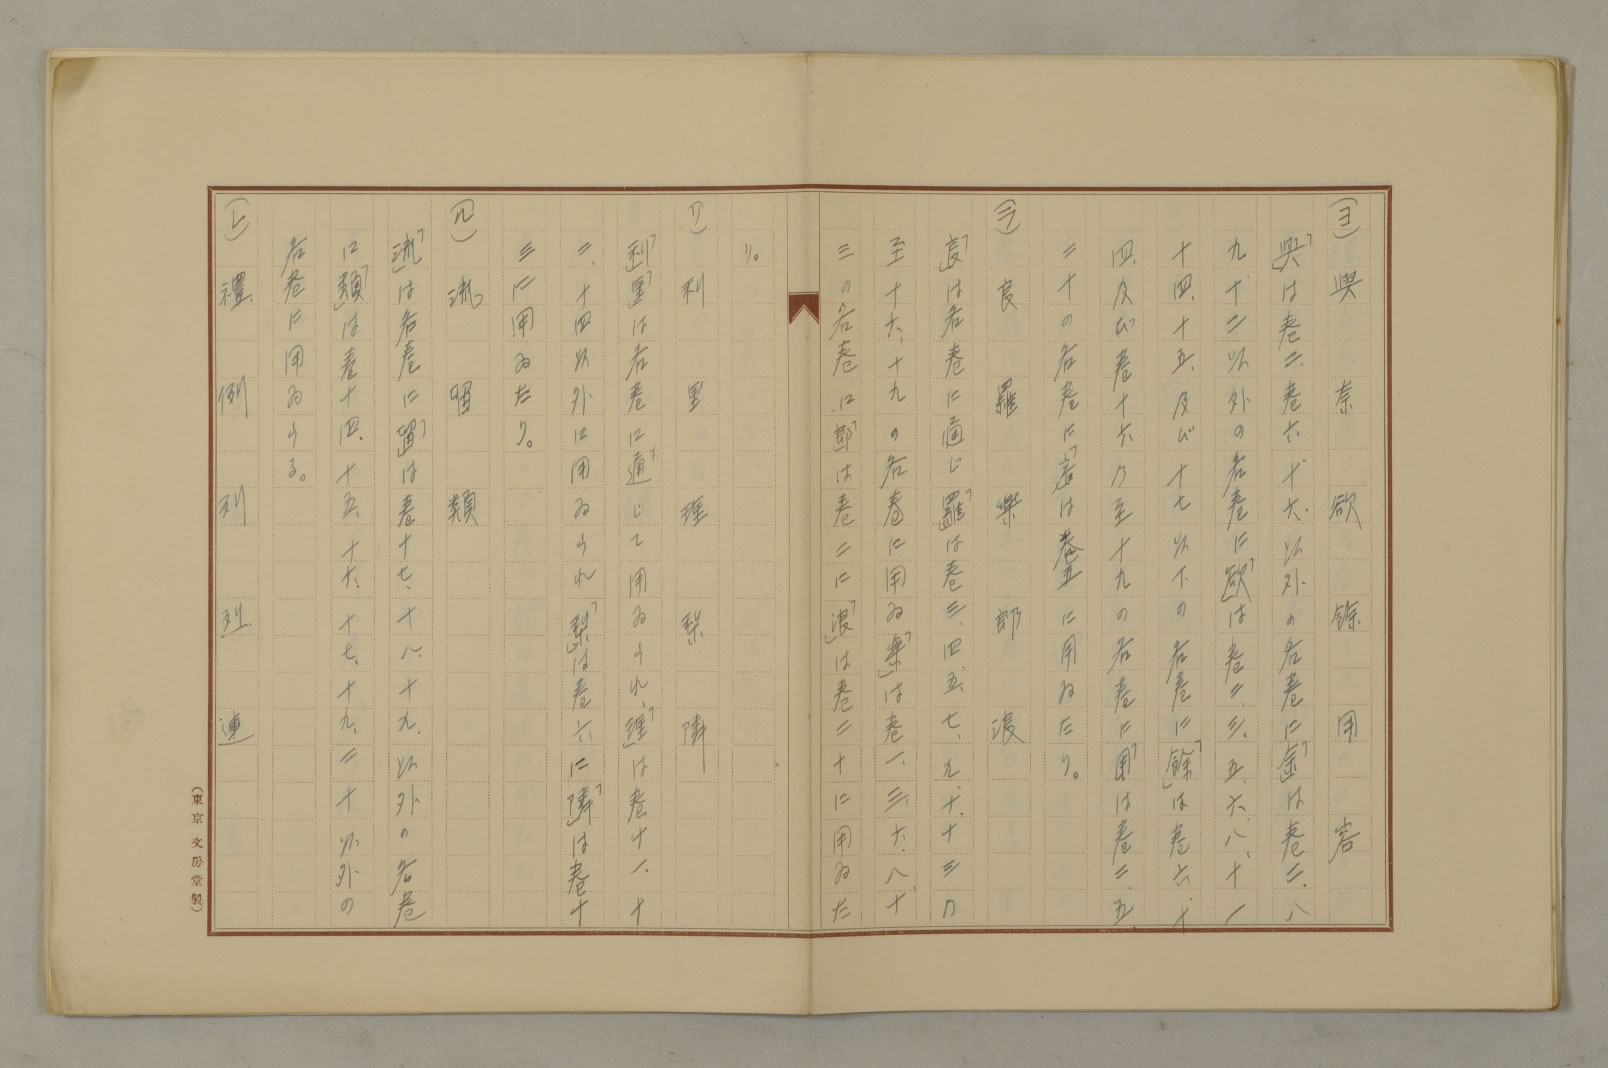 (ヨ) 與 奈 欲 餘 用 容
「與」は巻二、巻六、十六、以外の各巻に「奈」は巻二、八
九、十二以外の各巻に「欲」は巻二、三、五、六、八、十一
十四、十五、及び十七以下の各巻に「餘」は巻六、十
四、及び巻十六乃至十九の各巻に「用」は巻二、五、
二十の各巻に「容」は巻五に用ゐたり。
(ラ) 良 羅 樂 郎 浪
「良」は各巻に通じ「羅」は巻三、四、五、七、九、十、十三乃
至十六、十九の各巻に用ゐ「樂」は巻一、三、六、八、十
三の各巻に「郎」は巻二に「浪」は巻二十に用ゐた
り。
(リ) 利 里 理 梨 隣
「利」「里」は各巻に通じて用ゐられ、「理」は巻十一、十
二、十四以外に用ゐられ「梨」は巻六に「隣」は巻十
三に用ゐたり。
(ル) 流 留 類
「流」は各巻に「留」は巻十七、十八、十九、以外の各巻
に「類」は巻十四、十五、十六、十七、十九、二十以外の
各巻に用ゐらる。
(レ) 禮 例 列 烈 連
(東京 文房堂製)